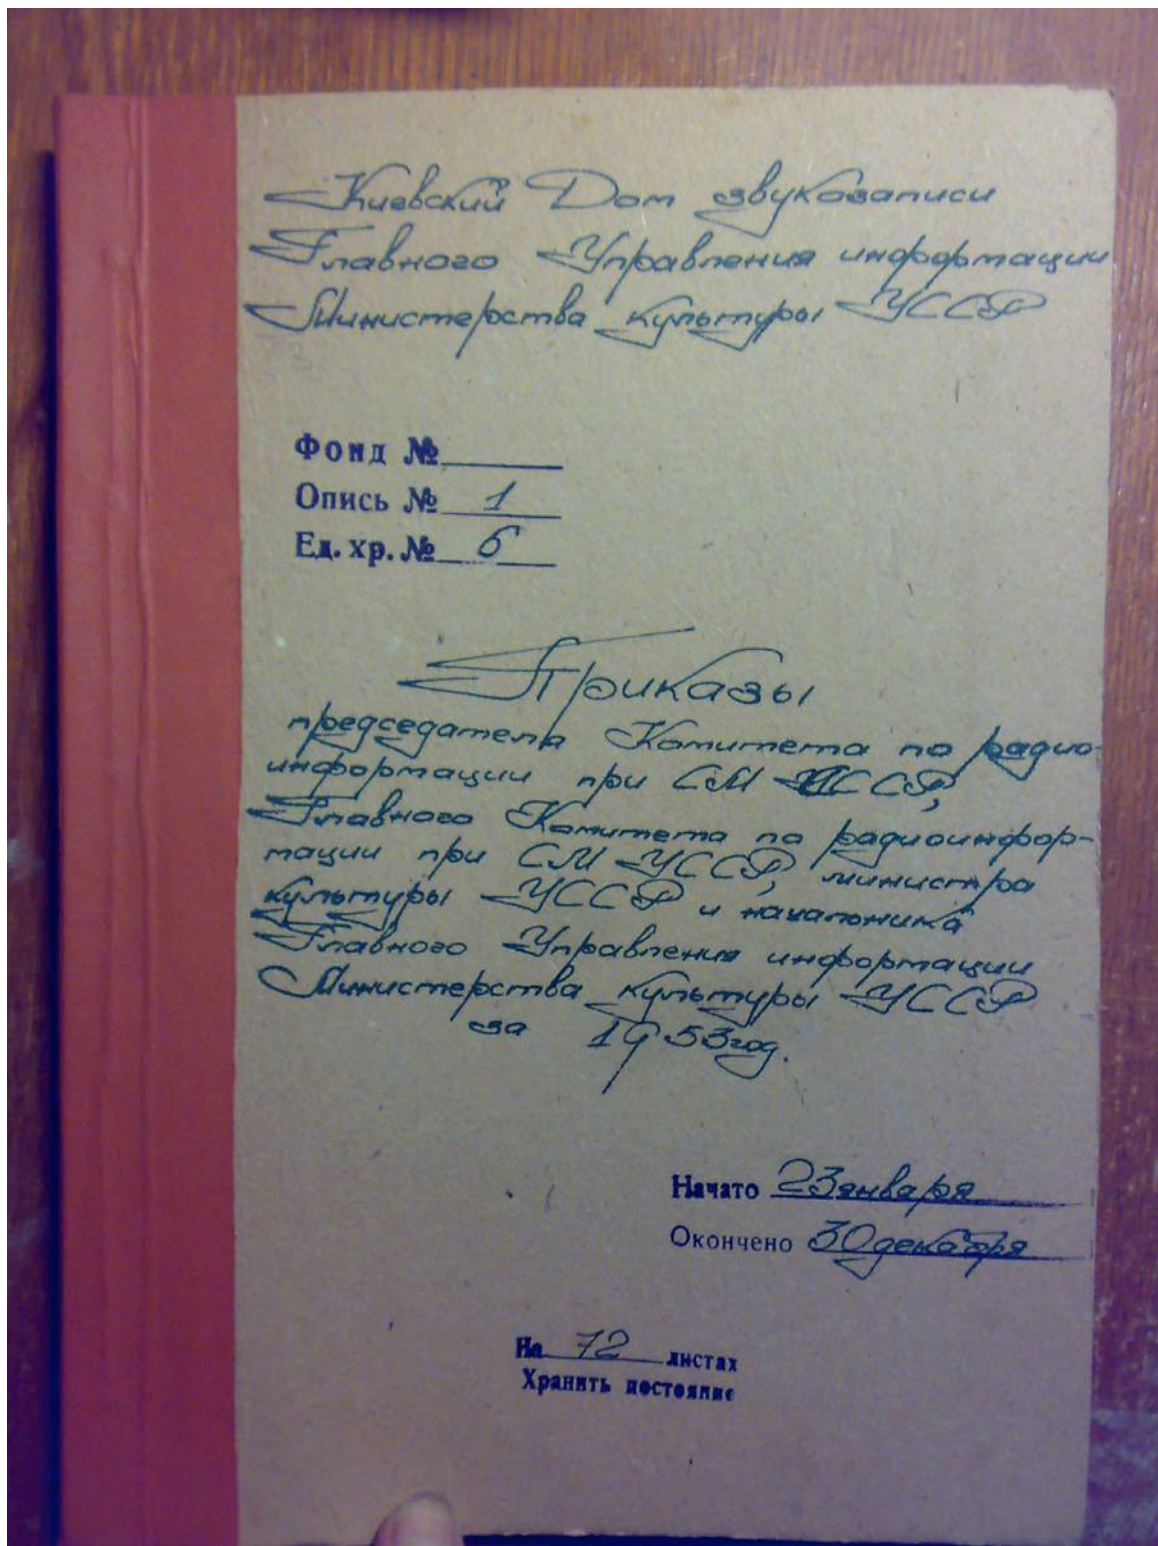 Киевский Дом звукозаписи
Главного Управления информации
Министерства культуры УССР
Фонд №
Опись № 1
Ед. хр. № 6
Приказы
председателя Комитета по радио-
информации при СМ УССР,
Главного Комитета по радиоинфор-
мации при СМ УССР, министра
культуры УССР и начальника
Главного Управления информации
Министерства культуры УССР
за 1953 год.
Начато 23 января
Окончено 30 декабря
На 72 листах
Хранить постоянно